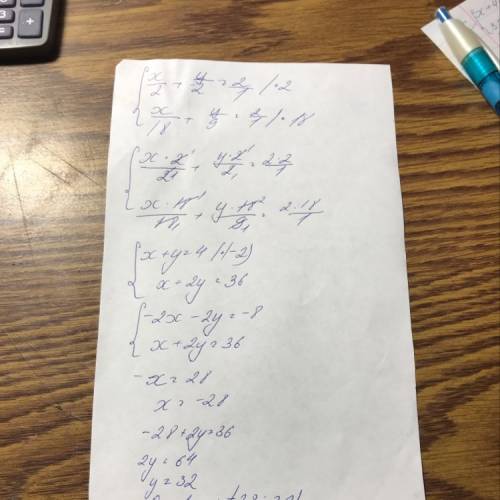 { x/2 + y/2 = 2/1 | · 2
x/18 + y/9 = 2/1 | · 18
{ x · 2¹/2₁ + y · 2¹/2₁ = 2 · 2/1
x · 18¹/18₁ + y · 18²/9₁ = 2 · 18/1
{ x + y = 4 | · (-2)
x + 2y = 36
{ -2x - 2y = -8
x + 2y = 36
-x = 28
x = -28
-28 + 2y = 36
2y = 64
y = 32